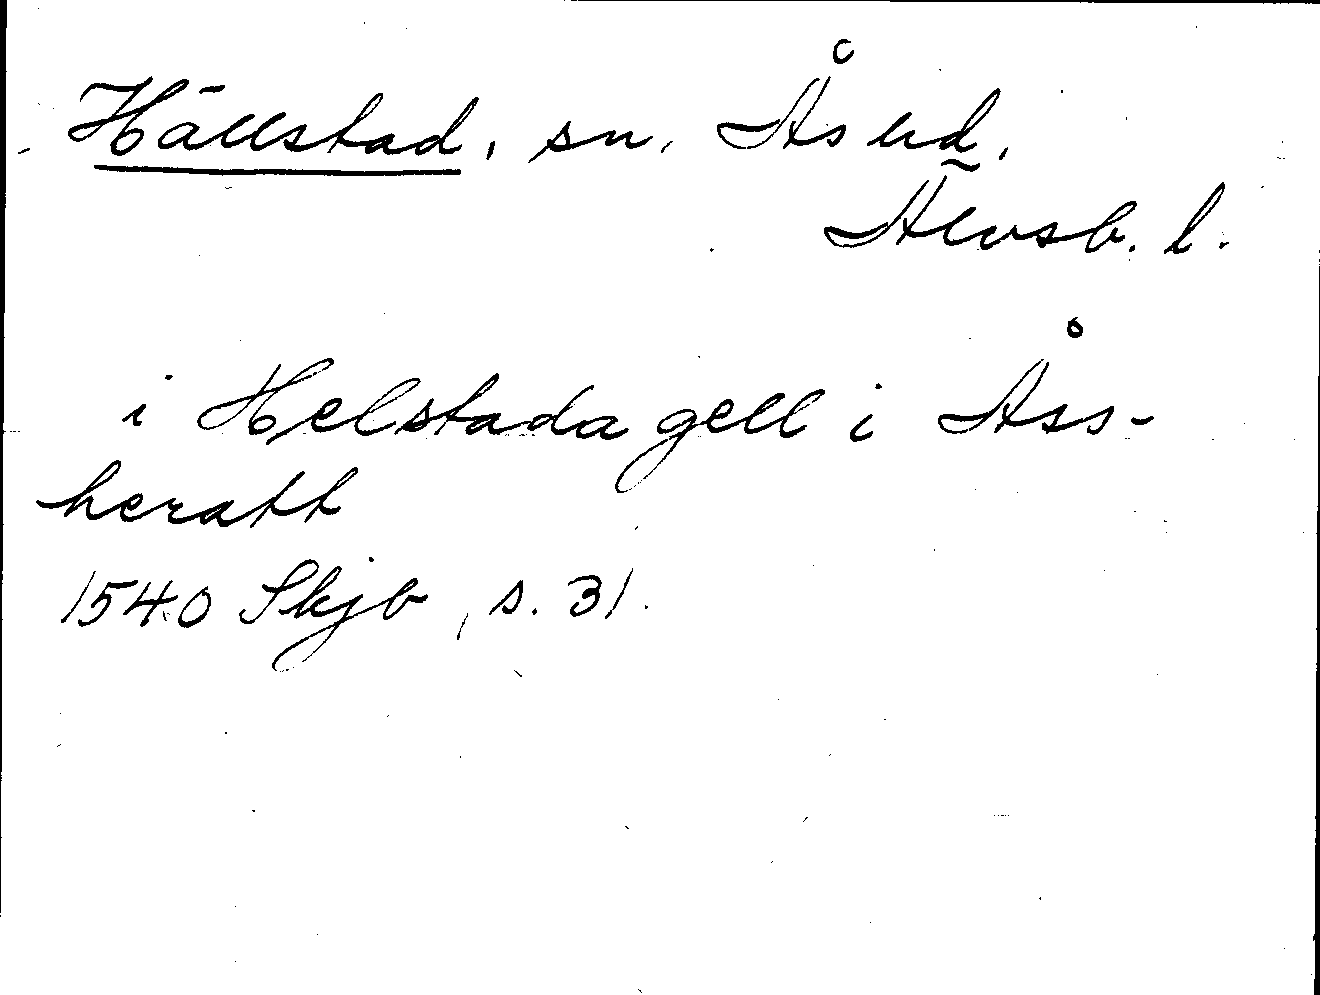 Hällstad, sn, Ås hd,
Älvsb. l.
i Helstada gell i Åss-
heratt
1540 Skjb, s. 31.